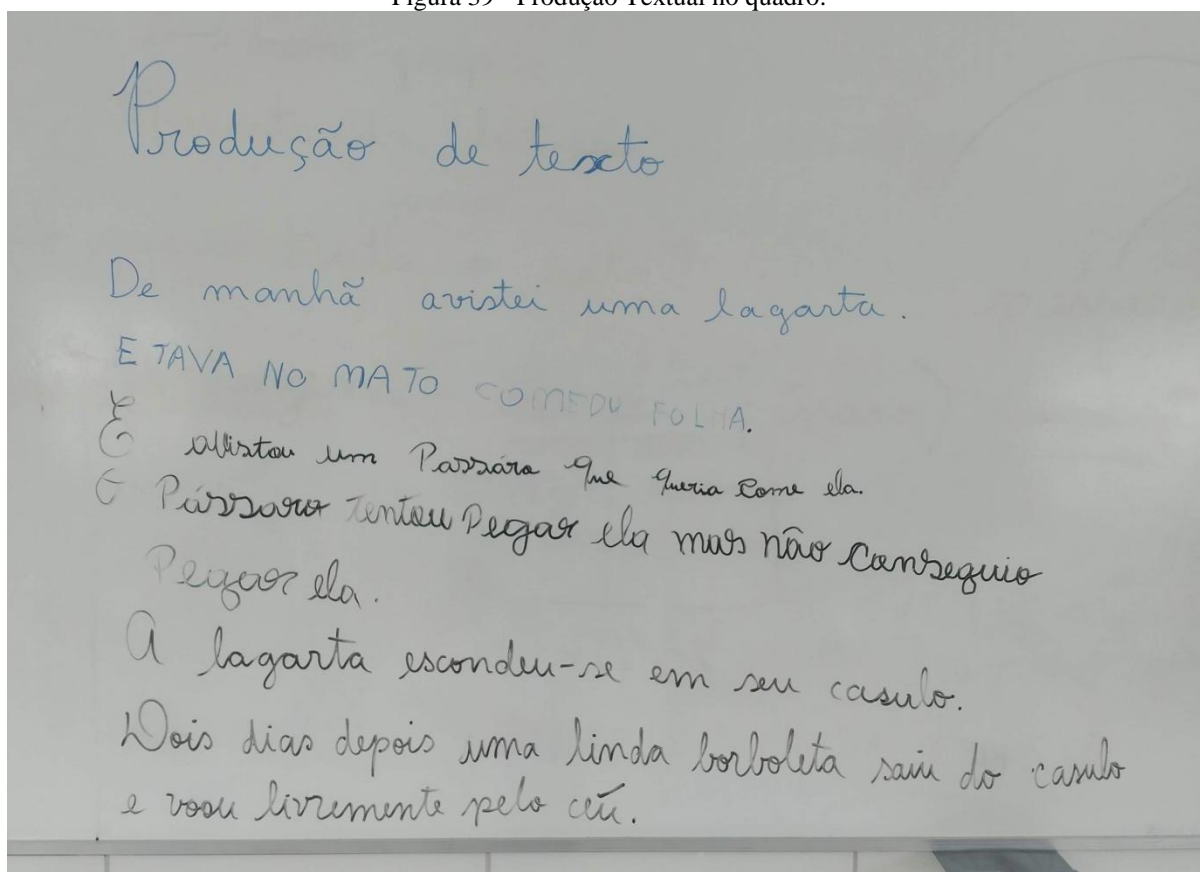 Figura 39 - Produção Textual no quadro.
Produção de texto
De manhã avistei uma lagarta.
E TAVA NO MATO COMEDU FOLHA.
E avistou um Passáro que queria come ela.
O Pássaro tentou Pegar ela mas não conseguio
Pegar ela.
A lagarta escondeu-se em seu casulo.
Dois dias depois uma linda borboleta saiu do casulo
e voou livremente pelo céu.